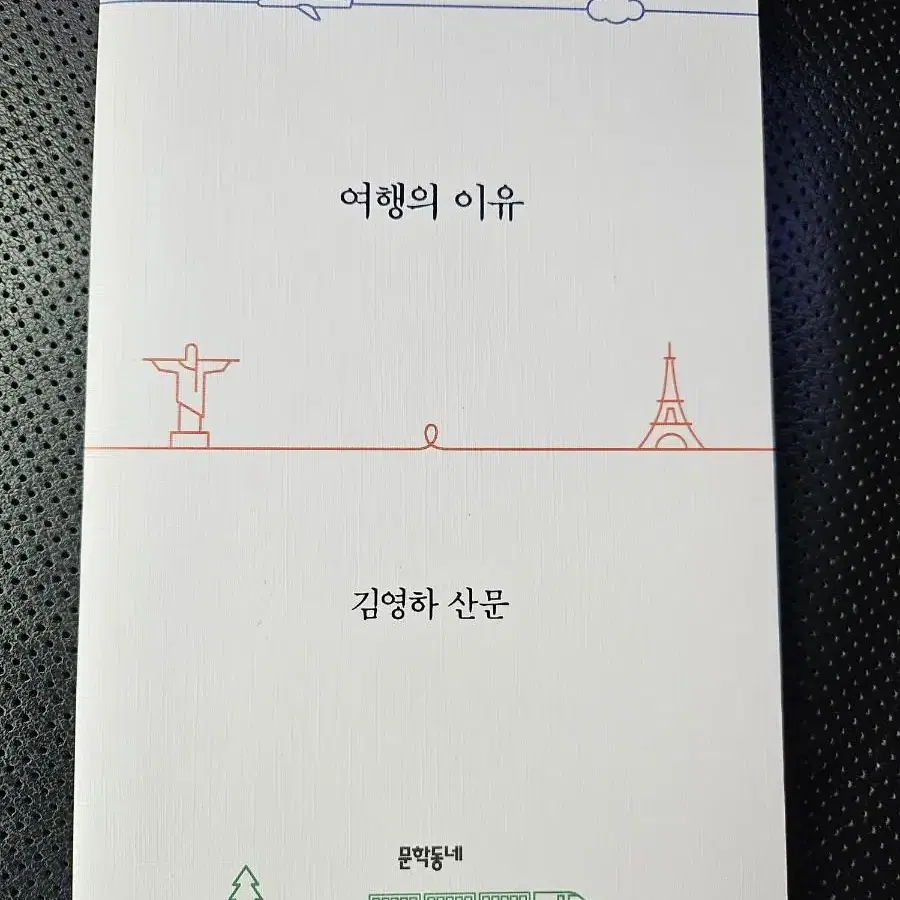 여행의 이유
김영하 산문
문학동네